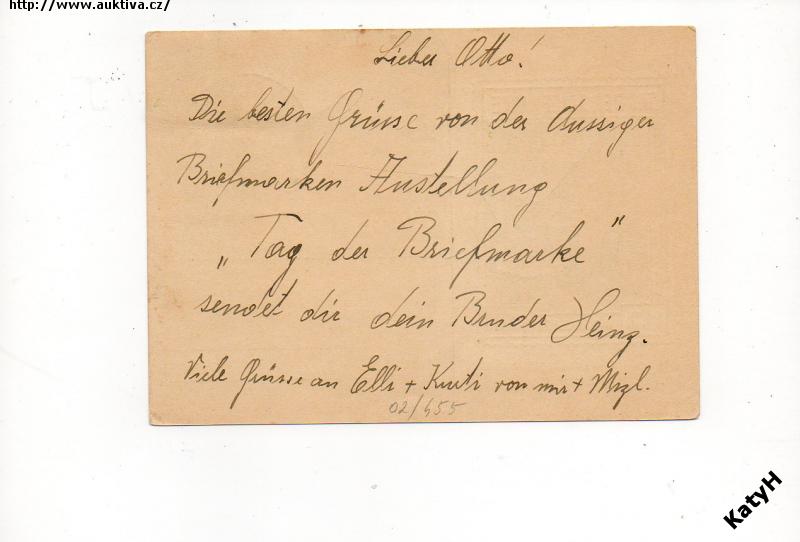 http://www.auktiva.cz/
Lieber Otto!
Die besten Grüsse von der Aussiger
Briefmarken Austellung
„Tag der Briefmarke"
sendet dir dein Bruder Heinz.
Viele Grüsse an Elli + Kurti von mir + Mizl.
02/455
KatyH